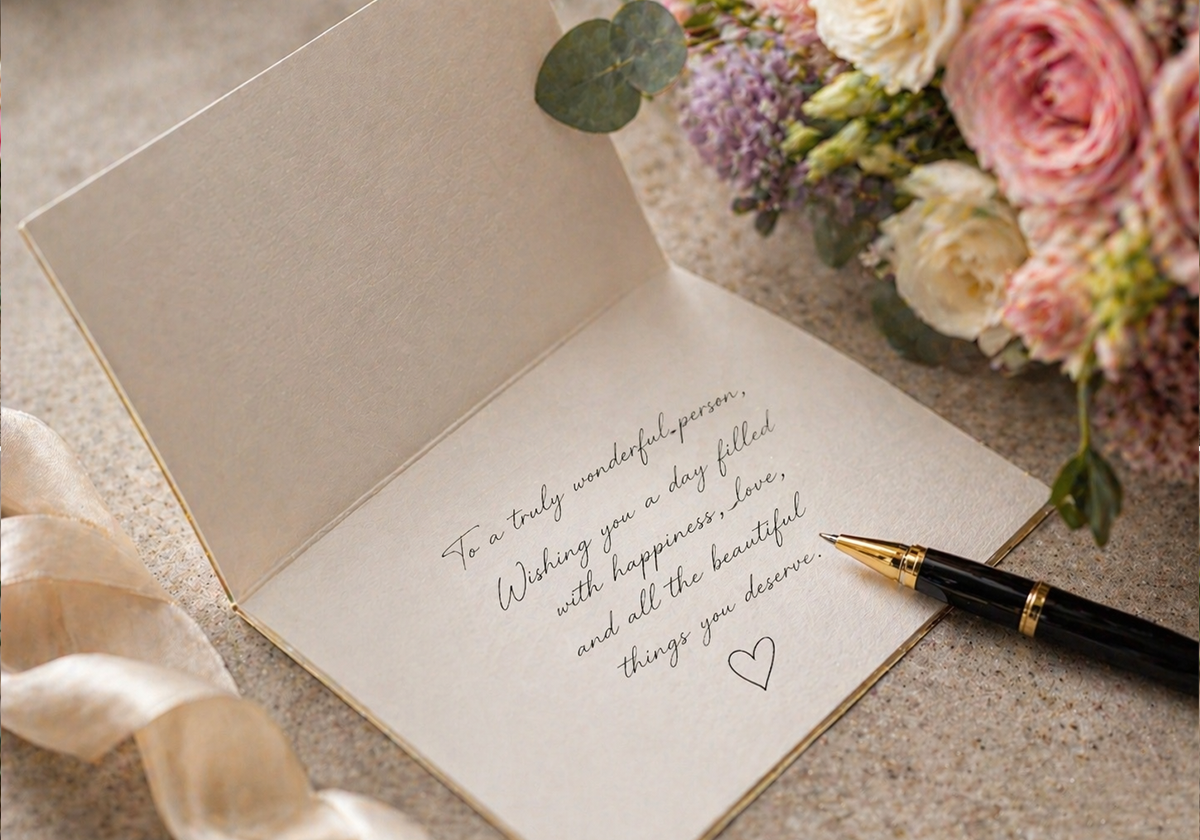 To a truly wonderful person,
Wishing you a day filled
with happiness, love,
and all the beautiful
things you deserve.